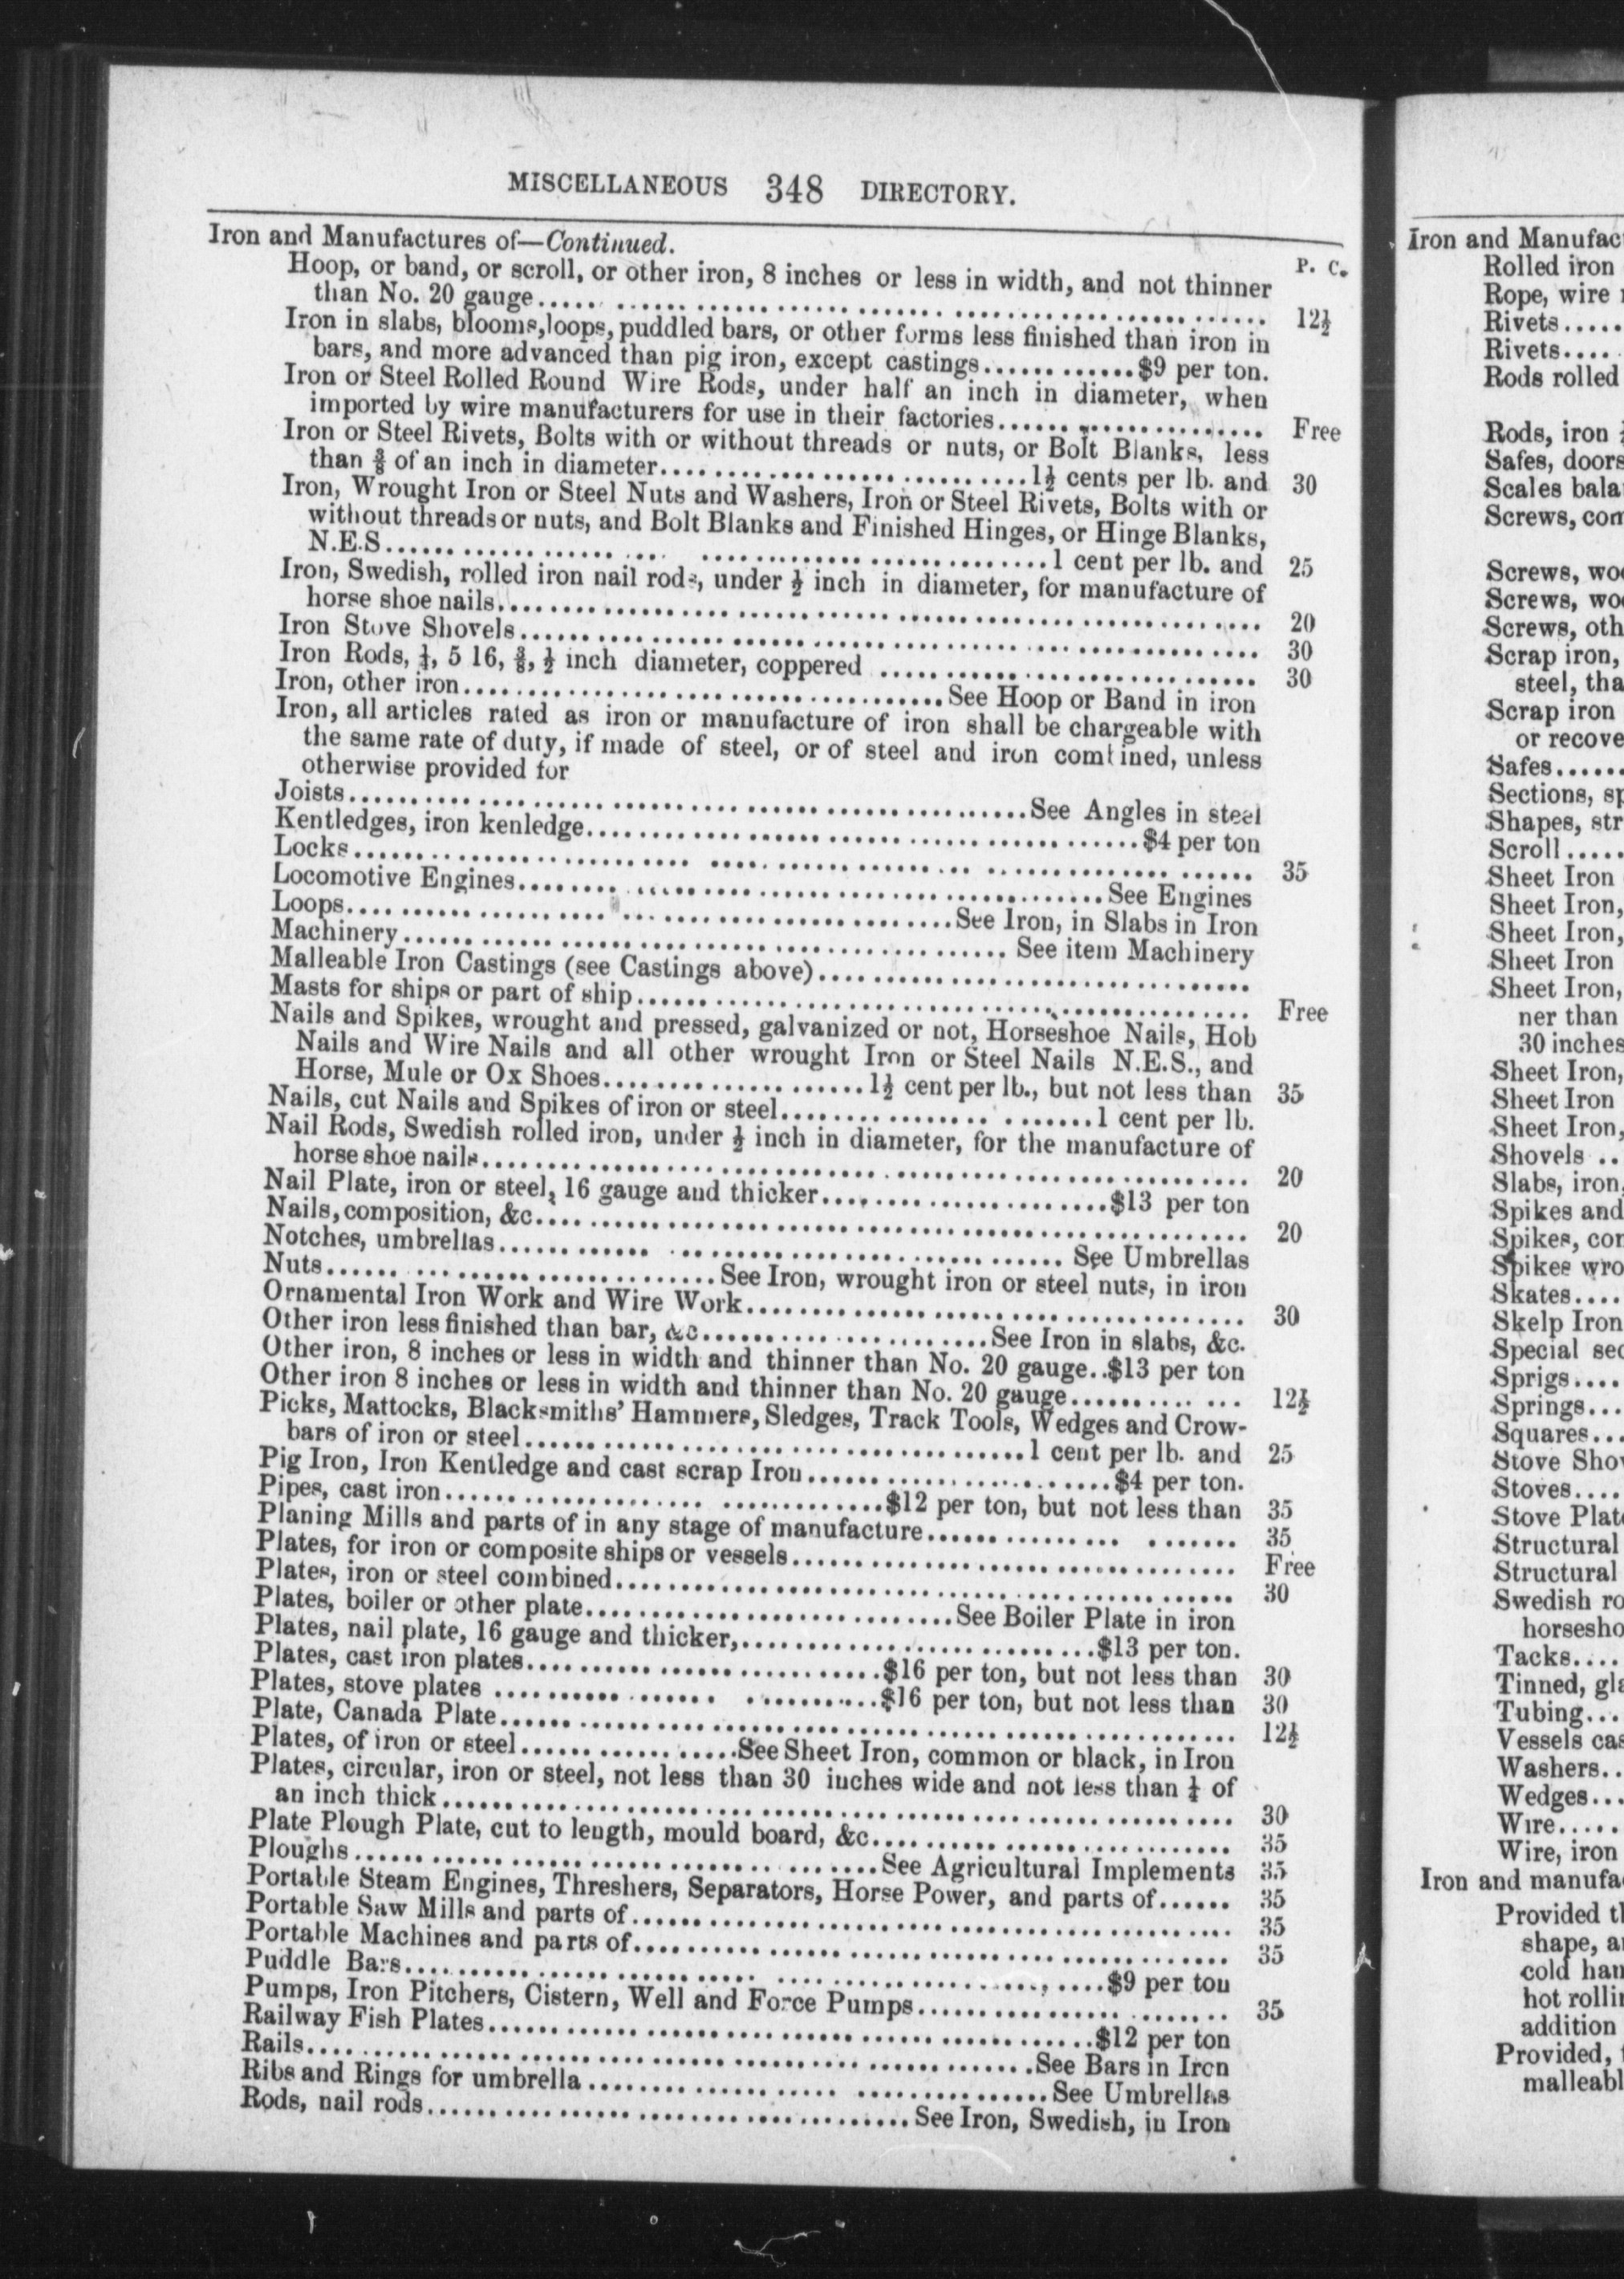 MISCELLANEOUS 348 DIRECTORY.
Iron and Manufactures of—Continued.
P. C.
Hoop, or band, or scroll, or other iron, 8 inches or less in width, and not thinner
than No. 20 gauge.......... 12½
Iron in slabs, blooms, loops, puddled bars, or other forms less finished than iron in
bars, and more advanced than pig iron, except castings..........$9 per ton.
Iron or Steel Rolled Round Wire Rods, under half an inch in diameter, when
imported by wire manufacturers for use in their factories.......... Free
Iron or Steel Rivets, Bolts with or without threads or nuts, or Bolt Blanks, less
than ⅜ of an inch in diameter..........1½ cents per lb. and 30
Iron, Wrought Iron or Steel Nuts and Washers, Iron or Steel Rivets, Bolts with or
without threads or nuts, and Bolt Blanks and Finished Hinges, or Hinge Blanks,
N.E.S..........1 cent per lb. and 25
Iron, Swedish, rolled iron nail rods, under ½ inch in diameter, for manufacture of
horse shoe nails.......... 20
Iron Stove Shovels.......... 30
Iron Rods, ¼, 5 16, ⅜, ½ inch diameter, coppered .......... 30
Iron, other iron..........See Hoop or Band in iron
Iron, all articles rated as iron or manufacture of iron shall be chargeable with
the same rate of duty, if made of steel, or of steel and iron combined, unless
otherwise provided for
Joists..........See Angles in steel
Kentledges, iron kenledge..........$4 per ton
Locks.......... 35
Locomotive Engines..........See Engines
Loops..........See Iron, in Slabs in Iron
Machinery.......... See item Machinery
Malleable Iron Castings (see Castings above)..........
Masts for ships or part of ship.......... Free
Nails and Spikes, wrought and pressed, galvanized or not, Horseshoe Nails, Hob
Nails and Wire Nails and all other wrought Iron or Steel Nails N.E.S., and
Horse, Mule or Ox Shoes..........1½ cent per lb., but not less than 35
Nails, cut Nails and Spikes of iron or steel..........1 cent per lb.
Nail Rods, Swedish rolled iron, under ½ inch in diameter, for the manufacture of
horse shoe nails.......... 20
Nail Plate, iron or steel, 16 gauge and thicker..........$13 per ton
Nails, composition, &c.......... 20
Notches, umbrellas.......... See Umbrellas
Nuts..........See Iron, wrought iron or steel nuts, in iron
Ornamental Iron Work and Wire Work.......... 30
Other iron less finished than bar, &c..........See Iron in slabs, &c.
Other iron, 8 inches or less in width and thinner than No. 20 gauge..$13 per ton
Other iron 8 inches or less in width and thinner than No. 20 gauge.......... 12½
Picks, Mattocks, Blacksmiths' Hammers, Sledges, Track Tools, Wedges and Crow-
bars of iron or steel..........1 cent per lb. and 25
Pig Iron, Iron Kentledge and cast scrap Iron..........$4 per ton.
Pipes, cast iron..........$12 per ton, but not less than 35
Planing Mills and parts of in any stage of manufacture.......... 35
Plates, for iron or composite ships or vessels.......... Free
Plates, iron or steel combined.......... 30
Plates, boiler or other plate..........See Boiler Plate in iron
Plates, nail plate, 16 gauge and thicker,..........$13 per ton.
Plates, cast iron plates..........$16 per ton, but not less than 30
Plates, stove plates ..........$16 per ton, but not less than 30
Plate, Canada Plate.......... 12½
Plates, of iron or steel..........See Sheet Iron, common or black, in Iron
Plates, circular, iron or steel, not less than 30 inches wide and not less than ¼ of
an inch thick.......... 30
Plate Plough Plate, cut to length, mould board, &c.......... 35
Ploughs..........See Agricultural Implements 35
Portable Steam Engines, Threshers, Separators, Horse Power, and parts of...... 35
Portable Saw Mills and parts of.......... 35
Portable Machines and parts of.......... 35
Puddle Bars..........$9 per ton
Pumps, Iron Pitchers, Cistern, Well and Force Pumps.......... 35
Railway Fish Plates..........$12 per ton
Rails..........See Bars in Iron
Ribs and Rings for umbrella..........See Umbrellas
Rods, nail rods..........See Iron, Swedish, in Iron
Iron and Manufac
Rolled iron
Rope, wire
Rivets.....
Rivets....
Rods rolled
Rods, iron
Safes, doors
Scales bala
Screws, com
Screws, woo
Screws, woo
Screws, oth
Scrap iron,
steel, tha
Scrap iron
or recove
Safes......
Sections, sp
Shapes, str
Scroll.....
Sheet Iron
Sheet Iron,
Sheet Iron,
Sheet Iron
Sheet Iron,
ner than
30 inches
Sheet Iron,
Sheet Iron
Sheet Iron,
Shovels ..
Slabs, iron,
Spikes and
Spikes, con
Spikes wro
Skates....
Skelp Iron
Special sec
Sprigs....
Springs...
Squares...
Stove Shov
Stoves....
Stove Plate
Structural
Structural
Swedish ro
horsesho
Tacks....
Tinned, gla
Tubing...
Vessels cas
Washers..
Wedges...
Wire.....
Wire, iron
Iron and manufa
Provided th
shape, a
cold ham
hot rollin
addition
Provided,
malleabl